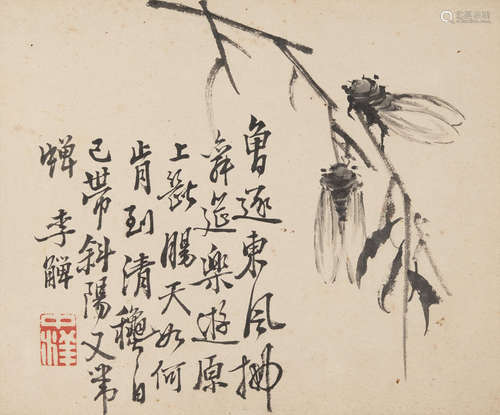 曾逐東風拂
舞筵樂遊原
上斷腸天如何
肯到清穐日
已帶斜陽又帶
蟬 李鱓
中洋